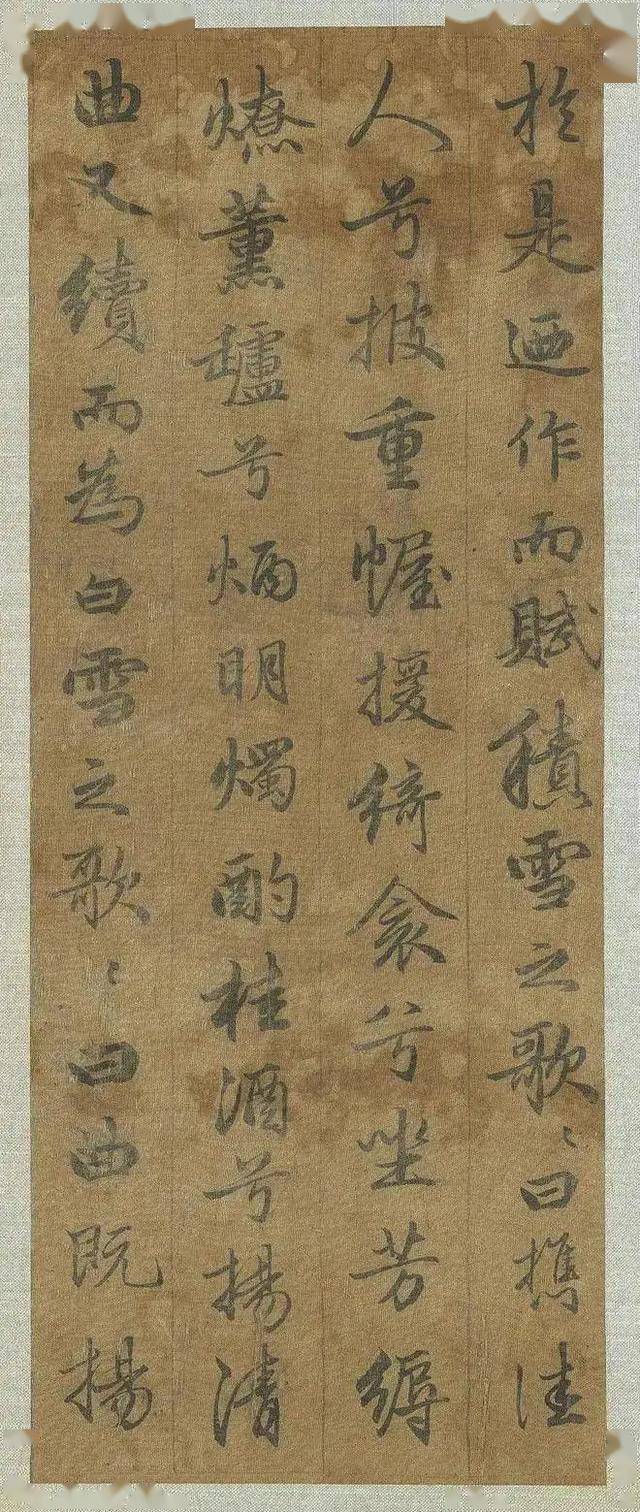 於是迺作而賦積雪之歌〻曰攜佳
人兮披重幄援綺衾兮坐芳縟
燎薰罏兮炳明燭酌桂酒兮揚清
曲又續而為白雪之歌〻曰曲既揚